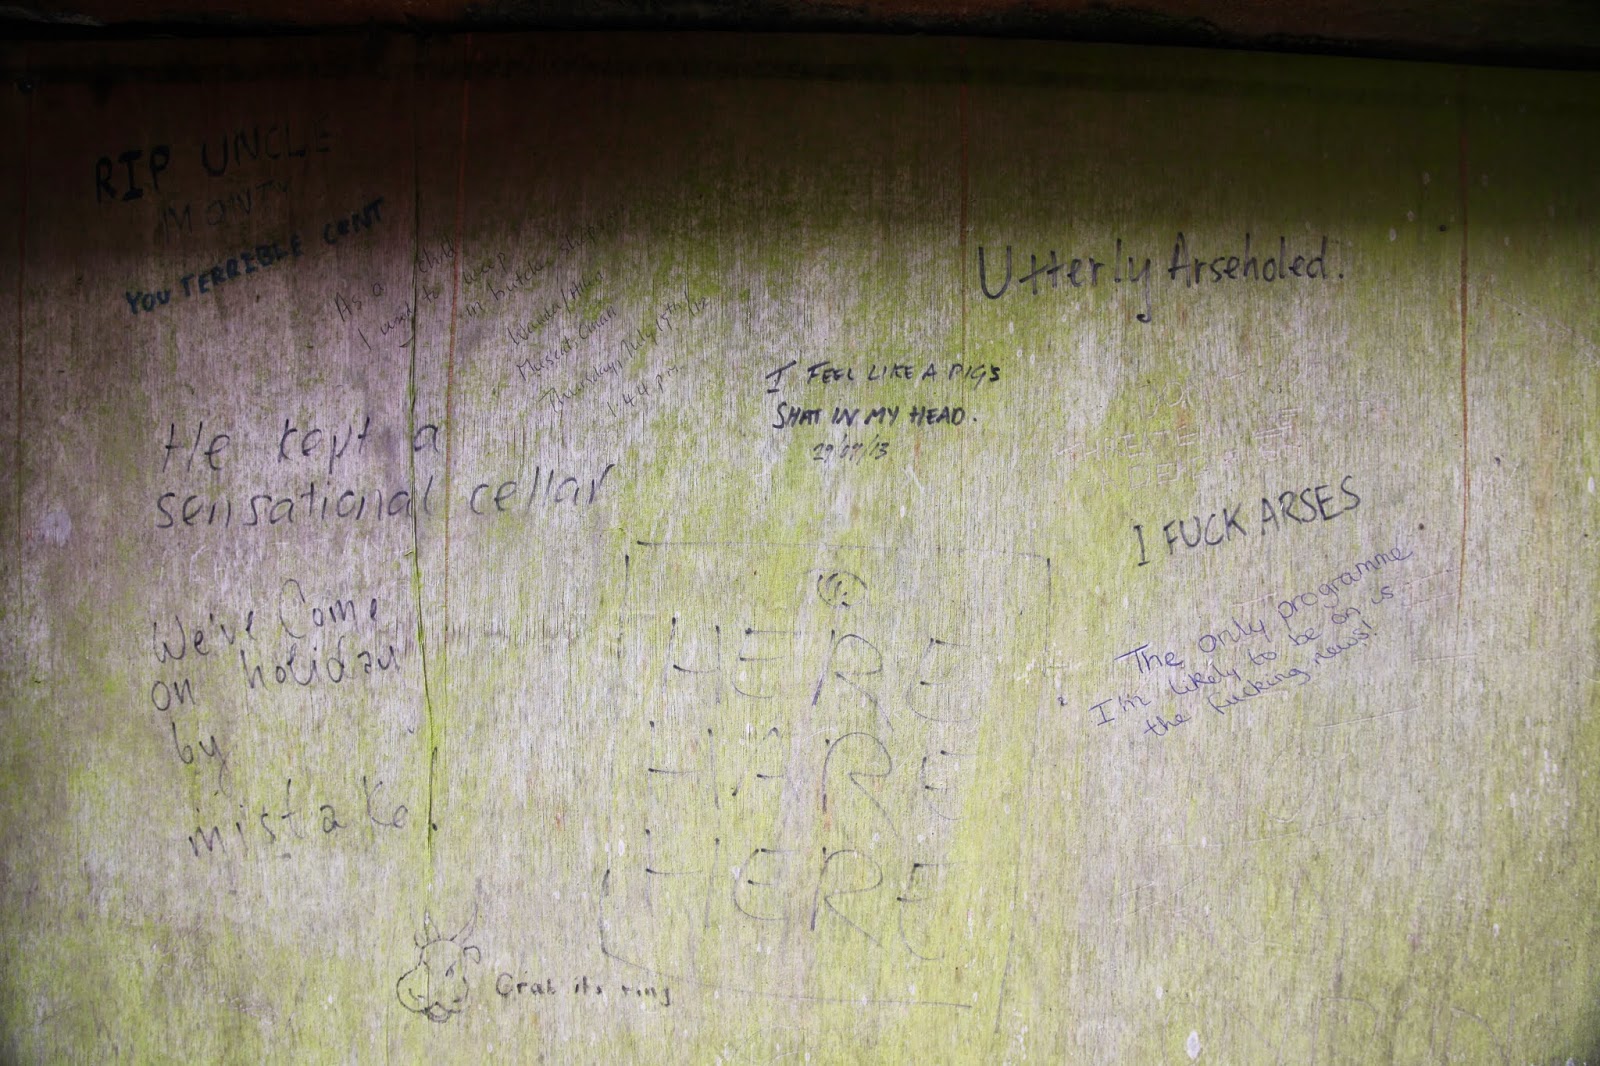 RIP UNCLE
MONTY
YOU TERRIBLE CUNT
As a child
I used to weep
in butcher shops
Muscat, Oman
Thursday, July 19th/12
1.44 pm
Utterly Arseholed.
I FEEL LIKE A PIGS
SHAT IN MY HEAD.
29/07/13
He kept a
sensational cellar
I FUCK ARSES
The only programme
I'm likely to be on is
the fucking news!
We've Come
on holiday
by
mistake!
HERE
HARE
HERE
Grab its ring